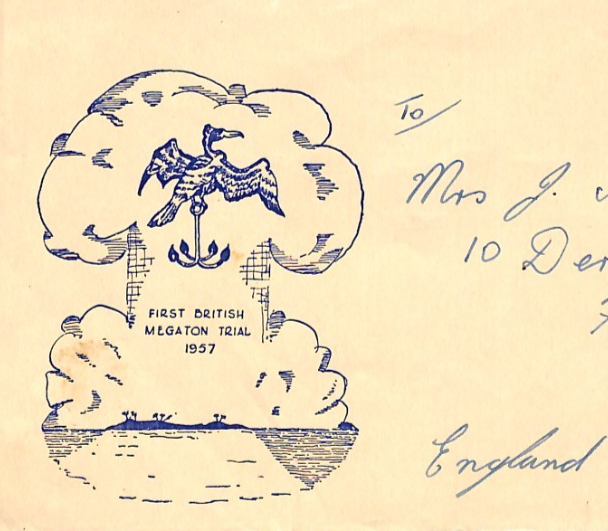 FIRST BRITISH
MEGATON TRIAL
1957
To/
Mrs J.
10 Der
England